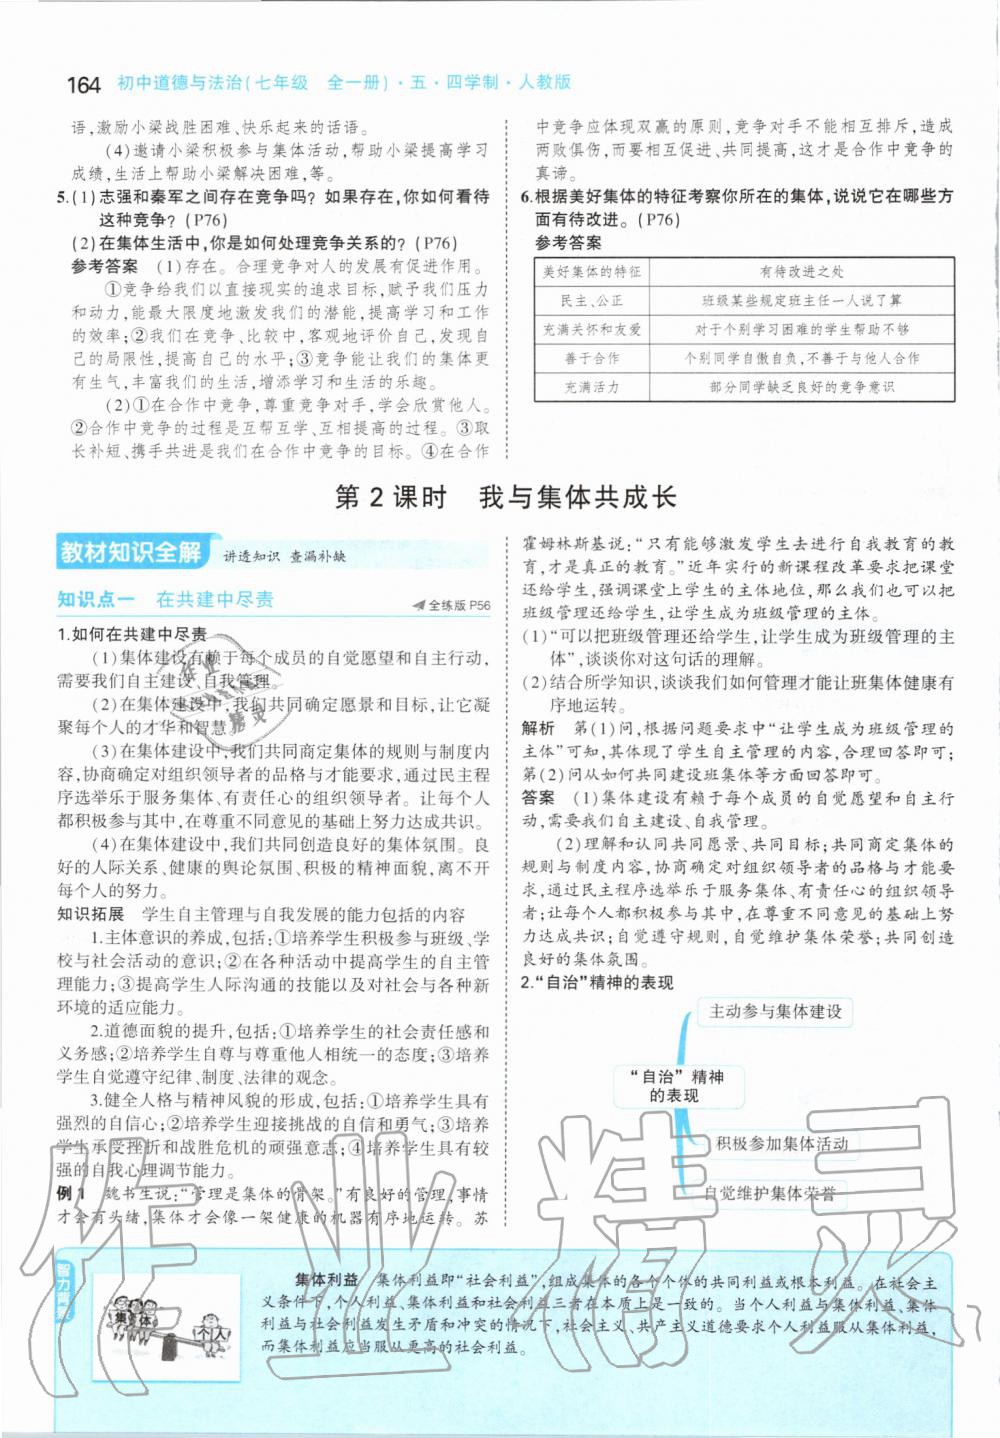 164 初中道德与法治(七年级 全一册)·五·四学制·人教版
语,激励小梁战胜困难、快乐起来的话语。
(4)邀请小梁积极参与集体活动,帮助小梁提高学习
成绩,生活上帮助小梁解决困难,等等。
5.(1)志强和秦军之间存在竞争吗?如果存在,你如何看待
这种竞争?(P76)
(2)在集体生活中,你是如何处理竞争关系的?(P76)
参考答案 (1)存在。合理竞争对人的发展有促进作用。
①竞争给我们以直接现实的追求目标,赋予我们压力
和动力,能最大限度地激发我们的潜能,提高学习和工作
的效率;②我们在竞争、比较中,客观地评价自己,发现自
己的局限性,提高自己的水平;③竞争能让我们的集体更
有生气,丰富我们的生活,增添学习和生活的乐趣。
(2)①在合作中竞争,尊重竞争对手,学会欣赏他人。
②合作竞争的过程是互帮互学、互相提高的过程。③取
长补短、携手共进是我们在合作中竞争的目标。④在合作
中竞争应体现双赢的原则,竞争对手不能相互排斥,造成
两败俱伤,而要相互促进、共同提高,这才是合作中竞争的
真谛。
6.根据美好集体的特征考察你所在的集体,说说它在哪些方
面有待改进。(P76)
参考答案
美好集体的特征 有待改进之处
民主、公正 班级某些规定班主任一人说了算
充满关怀和友爱 对于个别学习困难的学生帮助不够
善于合作 个别同学自傲自负,不善于与他人合作
充满活力 部分同学缺乏良好的竞争意识
第2课时 我与集体共成长
教材知识全解 讲透知识 查漏补缺
知识点一 在共建中尽责 全练版 P56
1.如何在共建中尽责
(1)集体建设有赖于每个成员的自觉愿望和自主行动,
需要我们自主建设、自我管理。
(2)在集体建设中,我们共同确定愿景和目标,让它凝
聚每个人的才华和智慧。
(3)在集体建设中,我们共同商定集体的规则与制度内
容,协商确定对组织领导者的品格与才能要求,通过民主程
序选举乐于服务集体、有责任心的组织领导者。让每个人
都积极参与其中,在尊重不同意见的基础上努力达成共识。
(4)在集体建设中,我们共同创造良好的集体氛围。良
好的人际关系、健康的舆论氛围、积极的精神面貌,离不开
每个人的努力。
知识拓展 学生自主管理与自我发展的能力包括的内容
1.主体意识的养成,包括:①培养学生积极参与班级、学
校与社会活动的意识;②在各种活动中提高学生的自主管
理能力;③提高学生人际沟通的技能以及对社会与各种新
环境的适应能力。
2.道德面貌的提升,包括:①培养学生的社会责任感和
义务感;②培养学生自尊与尊重他人相统一的态度;③培养
学生自觉遵守纪律、制度、法律的观念。
3.健全人格与精神风貌的形成,包括:①培养学生具有
强烈的自信心;②培养学生迎接挑战的自信和勇气;③培养
学生承受挫折和战胜危机的顽强意志;④培养学生具有较
强的自我心理调节能力。
例1 魏书生说:“管理是集体的骨架。”有良好的管理,事情
才会有头绪,集体才会像一架健康的机器有序地运转。苏
霍姆林斯基说:“只有能够激发学生去进行自我教育的教
育,才是真正的教育。”近年实行的新课程改革要求把课堂
还给学生,强调课堂上学生的主体地位,那么我们也可以把
班级管理还给学生,让学生成为班级管理的主体。
(1)“可以把班级管理还给学生,让学生成为班级管理的主
体”,谈谈你对这句话的理解。
(2)结合所学知识,谈谈我们如何管理才能让班集体健康有
序地运转。
解析 第(1)问,根据问题要求中“让学生成为班级管理的
主体”可知,其体现了学生自主管理的内容,合理回答即可;
第(2)问从如何共同建设班集体等方面回答即可。
答案 (1)集体建设有赖于每个成员的自觉愿望和自主行
动,需要我们自主建设、自我管理。
(2)理解和认同共同愿景、共同目标;共同商定集体的
规则与制度内容,协商确定对组织领导者的品格与才能要
求,通过民主程序选举乐于服务集体、有责任心的组织领导
者;让每个人都积极参与其中,在尊重不同意见的基础上努
力达成共识;自觉遵守规则,自觉维护集体荣誉;共同创造
良好的集体氛围。
2.“自治”精神的表现
主动参与集体建设
“自治”精神
的表现
积极参加集体活动
自觉维护集体荣誉
集体
个人
集体利益 集体利益即“社会利益”,组成集体的各个个体的共同利益或根本利益。在社会主
义条件下,个人利益、集体利益和社会利益三者在本质上是一致的。当个人利益与集体利益、集体
利益与社会利益发生矛盾和冲突的情况下,社会主义、共产主义道德要求个人利益服从集体利益,
而集体利益应当服从更高的社会利益。
作业精灵